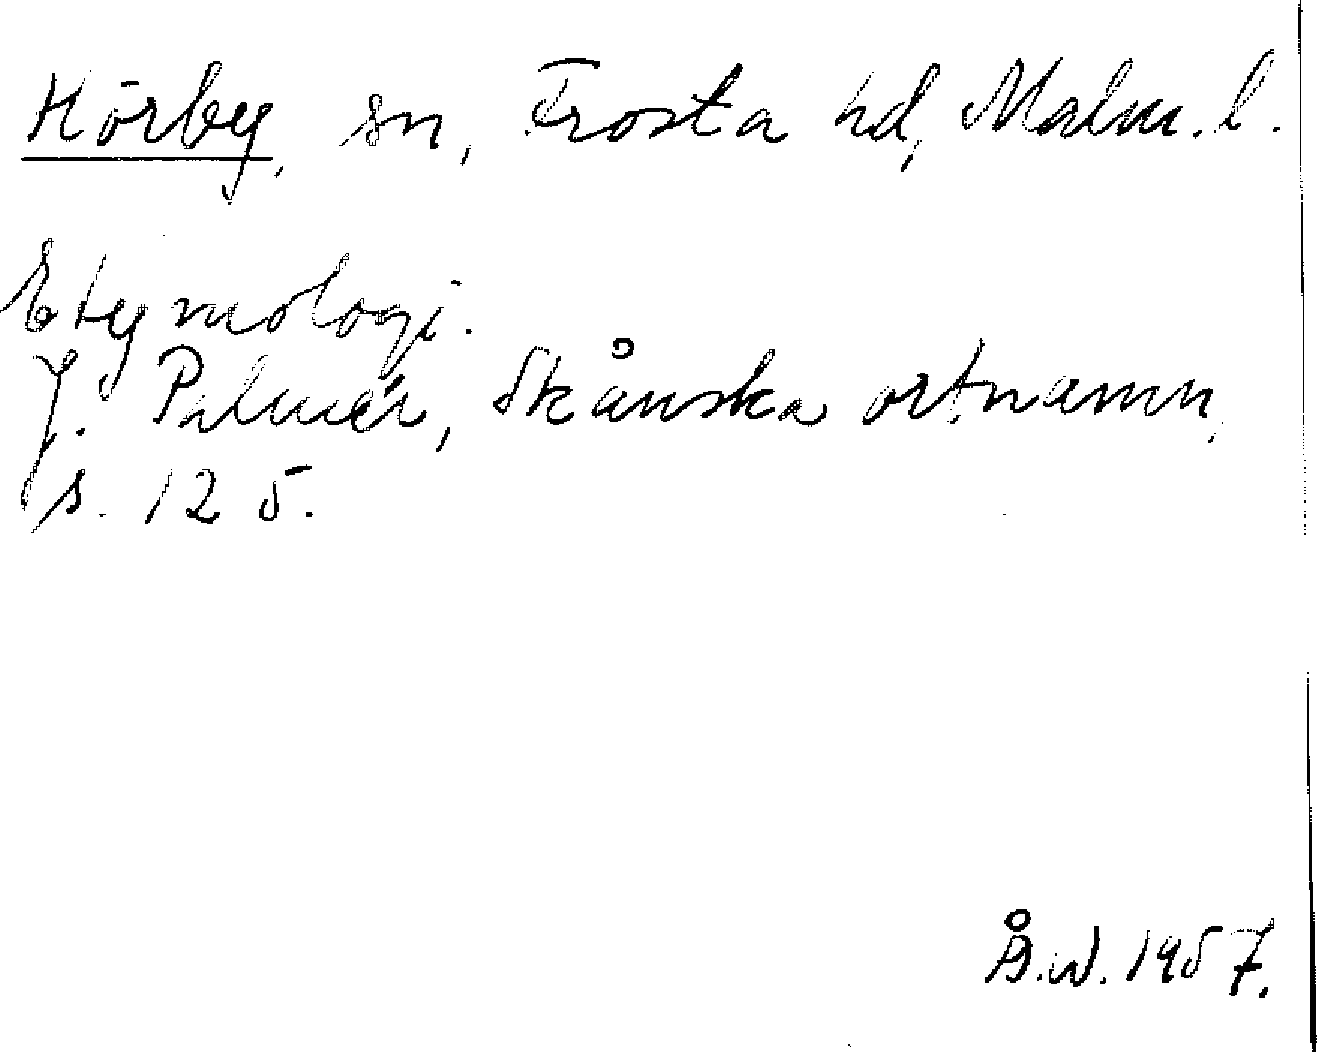 Hörby, sn, Frosta hd, Malm. l.
Etymologi.
J. Palmér, Skånska ortnamn,
s. 125.
Å.W. 1957.